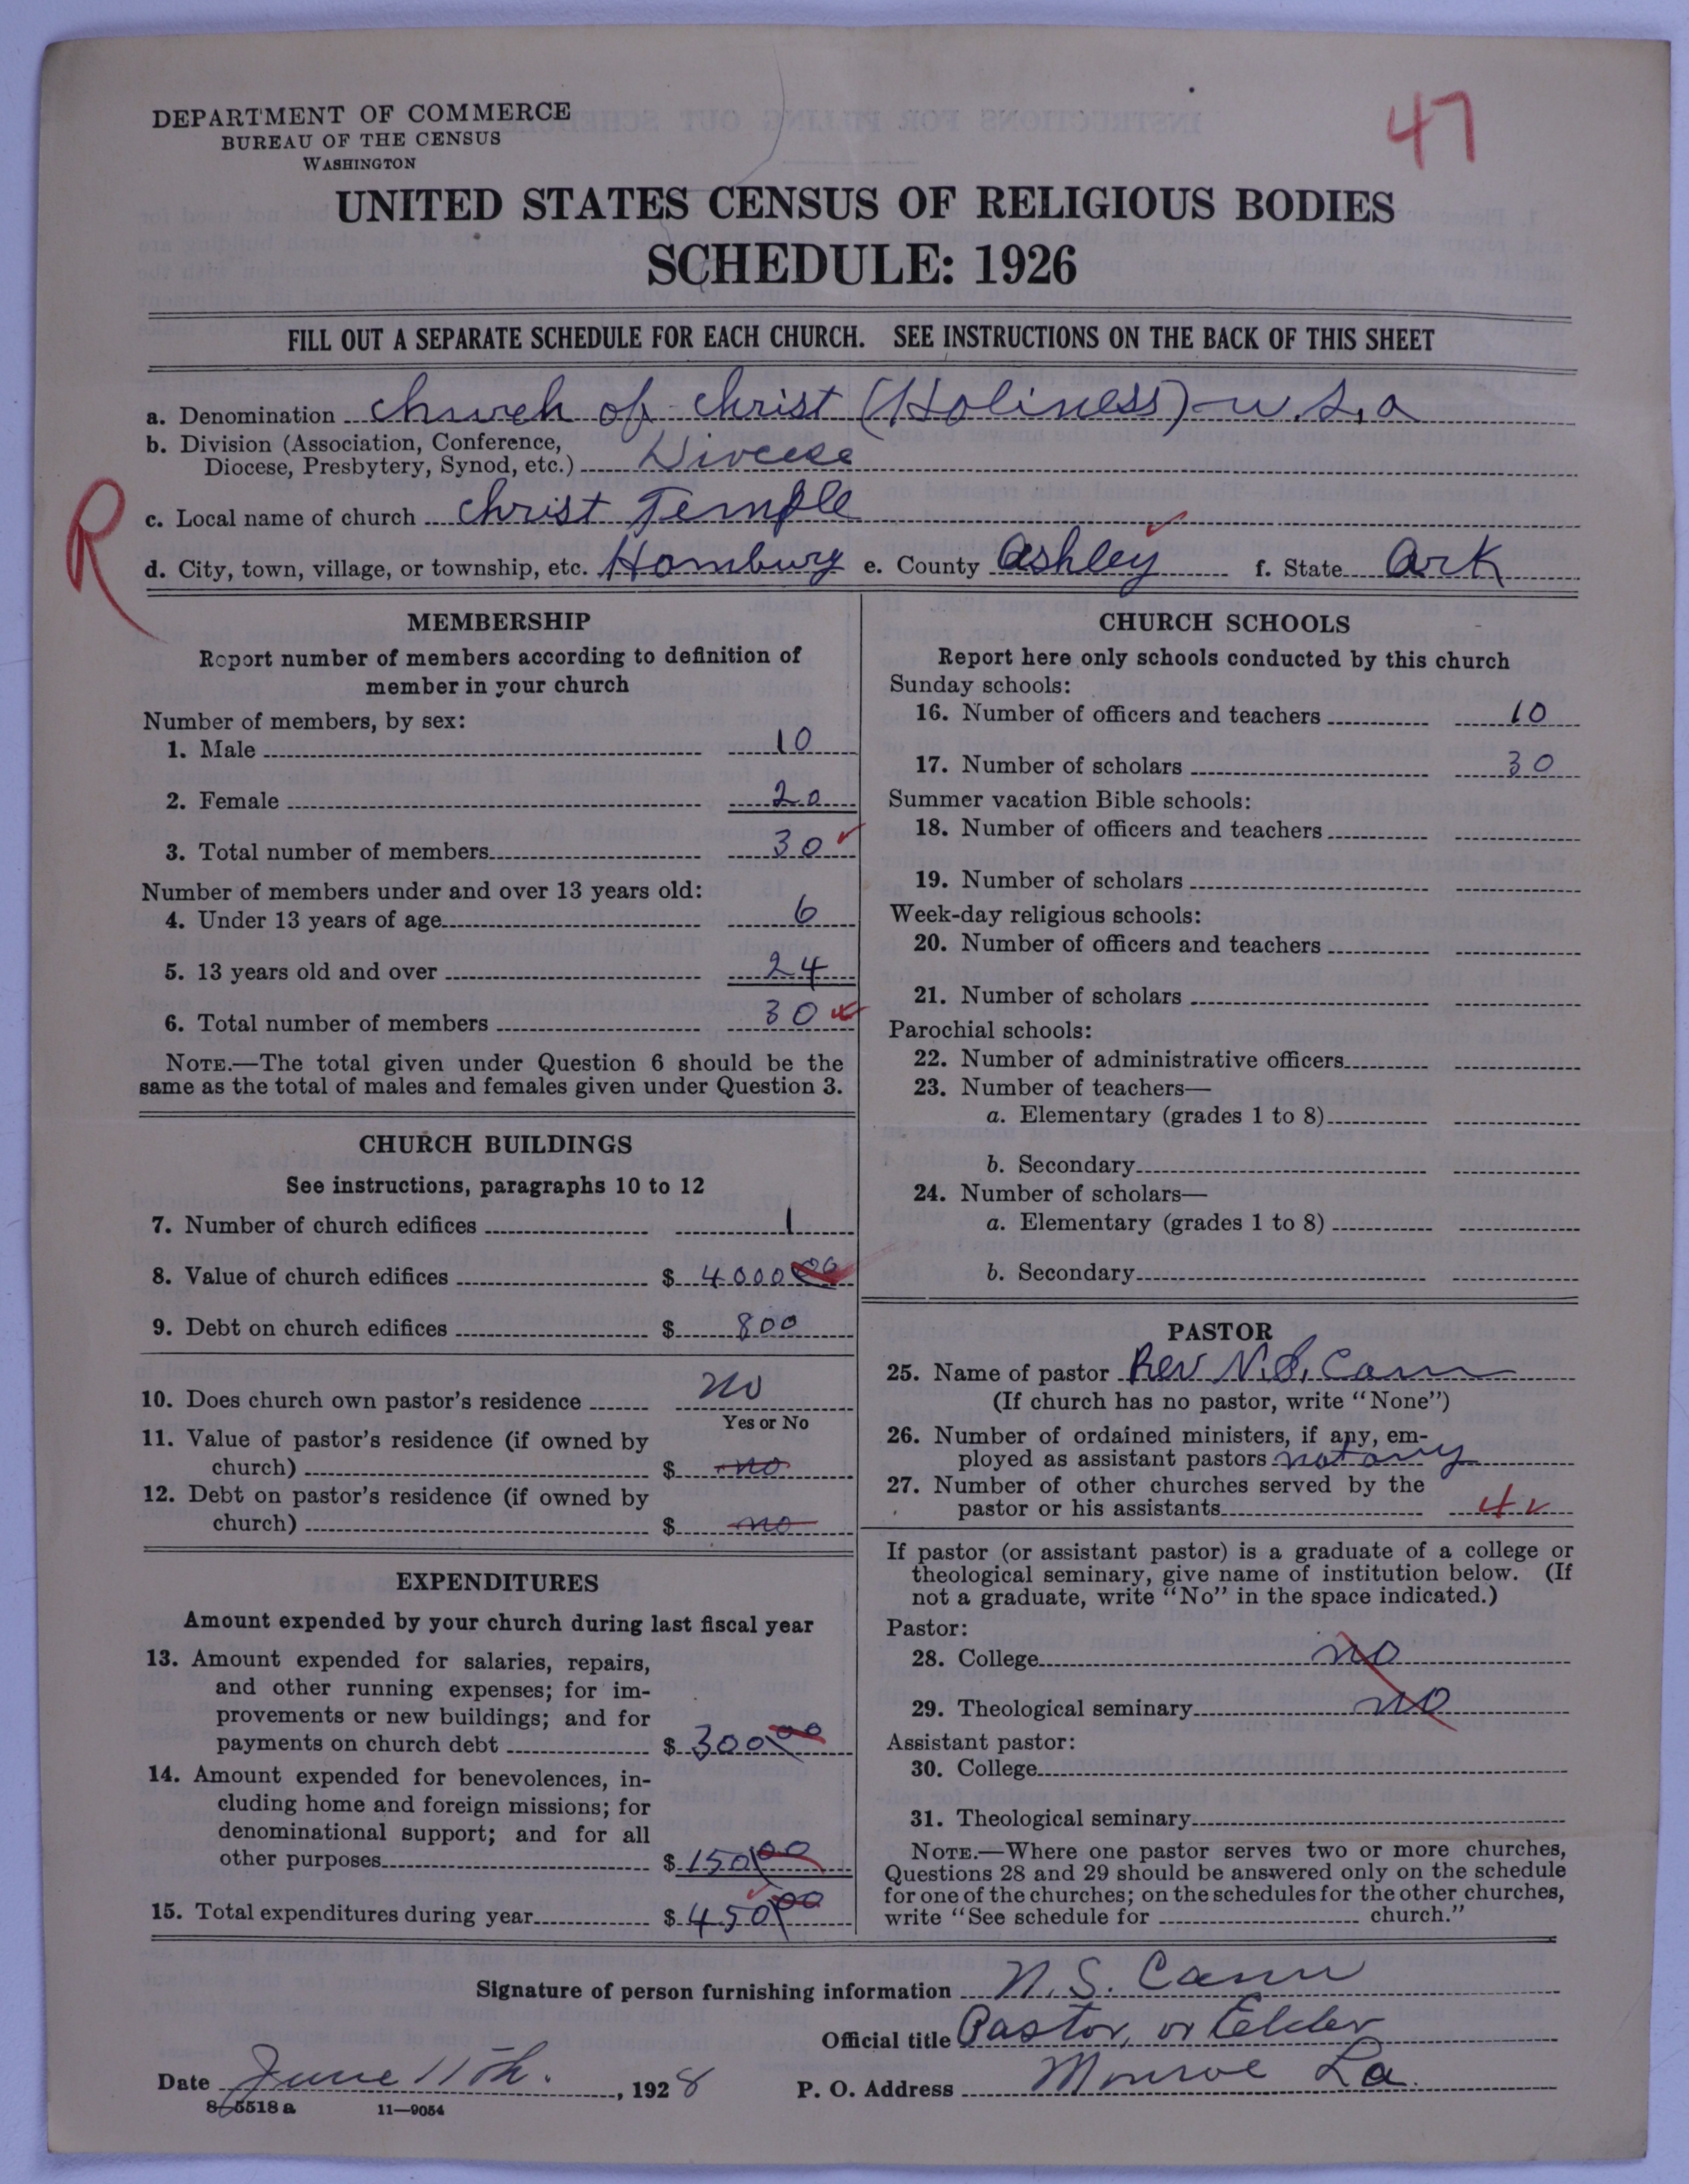 47
DEPARTMENT OF COMMERCE
BUREAU OF THE CENSUS
WASHINGTON
UNITED STATES CENSUS OF RELIGIOUS BODIES
SCHEDULE: 1926
FILL OUT A SEPARATE SCHEDULE FOR EACH CHURCH. SEE INSTRUCTIONS ON THE BACK OF THIS SHEET
a. Denomination church of christ (Holiness)-u.s.a
b. Division (Association, Conference,
Diocese, Presbytery, Synod, etc.) Diocese
R
c. Local name of church christ Temple
d. City, town, village, or township, etc. Hamburg e. County Ashley f. State Ark
MEMBERSHIP
Report number of members according to definition of
member in your church
Number of members, by sex:
1. Male 10
2. Female 20
3. Total number of members 30
Number of members under and over 13 years old:
4. Under 13 years of age 6
5. 13 years old and over 24
6. Total number of members 30
NOTE.—The total given under Question 6 should be the
same as the total of males and females given under Question 3.
CHURCH BUILDINGS
See instructions, paragraphs 10 to 12
7. Number of church edifices 1
8. Value of church edifices $ 4000 00
9. Debt on church edifices $ 800
10. Does church own pastor's residence no
Yes or No
11. Value of pastor's residence (if owned by
church) $ no
12. Debt on pastor's residence (if owned by
church) $ no
EXPENDITURES
Amount expended by your church during last fiscal year
13. Amount expended for salaries, repairs,
and other running expenses; for im-
provements or new buildings; and for
payments on church debt $ 300 00
14. Amount expended for benevolences, in-
cluding home and foreign missions; for
denominational support; and for all
other purposes $ 150 00
15. Total expenditures during year $ 450 00
CHURCH SCHOOLS
Report here only schools conducted by this church
Sunday schools:
16. Number of officers and teachers 10
17. Number of scholars 30
Summer vacation Bible schools:
18. Number of officers and teachers
19. Number of scholars
Week-day religious schools:
20. Number of officers and teachers
21. Number of scholars
Parochial schools:
22. Number of administrative officers
23. Number of teachers—
a. Elementary (grades 1 to 8)
b. Secondary
24. Number of scholars—
a. Elementary (grades 1 to 8)
b. Secondary
PASTOR
25. Name of pastor Rev N.S. Cann
(If church has no pastor, write "None")
26. Number of ordained ministers, if any, em-
ployed as assistant pastors not any
27. Number of other churches served by the
pastor or his assistants 4
If pastor (or assistant pastor) is a graduate of a college or
theological seminary, give name of institution below. (If
not a graduate, write "No" in the space indicated.)
Pastor:
28. College no
29. Theological seminary no
Assistant pastor:
30. College
31. Theological seminary
NOTE.—Where one pastor serves two or more churches,
Questions 28 and 29 should be answered only on the schedule
for one of the churches; on the schedules for the other churches,
write "See schedule for church."
Signature of person furnishing information N. S. Cann
Official title Pastor, or Elder
Date June 11th. , 1928 P. O. Address Monroe La.
8-5518 a 11—9054